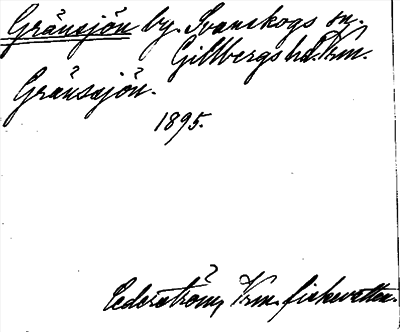 Gränsjön by. Svanskogs sn.
Gillbergs hd. Vrm.
Gränssjön.
1895.
Cederström, Vrm. fiskevatten.